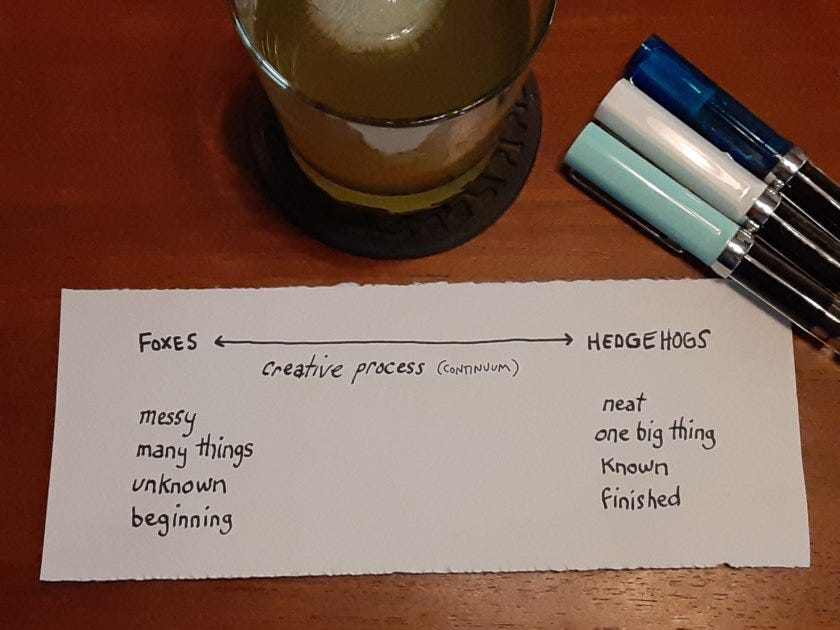 FOXES HEDGEHOGS
creative process (CONTINUUM)
messy
many things
unknown
beginning
neat
one big thing
known
finished